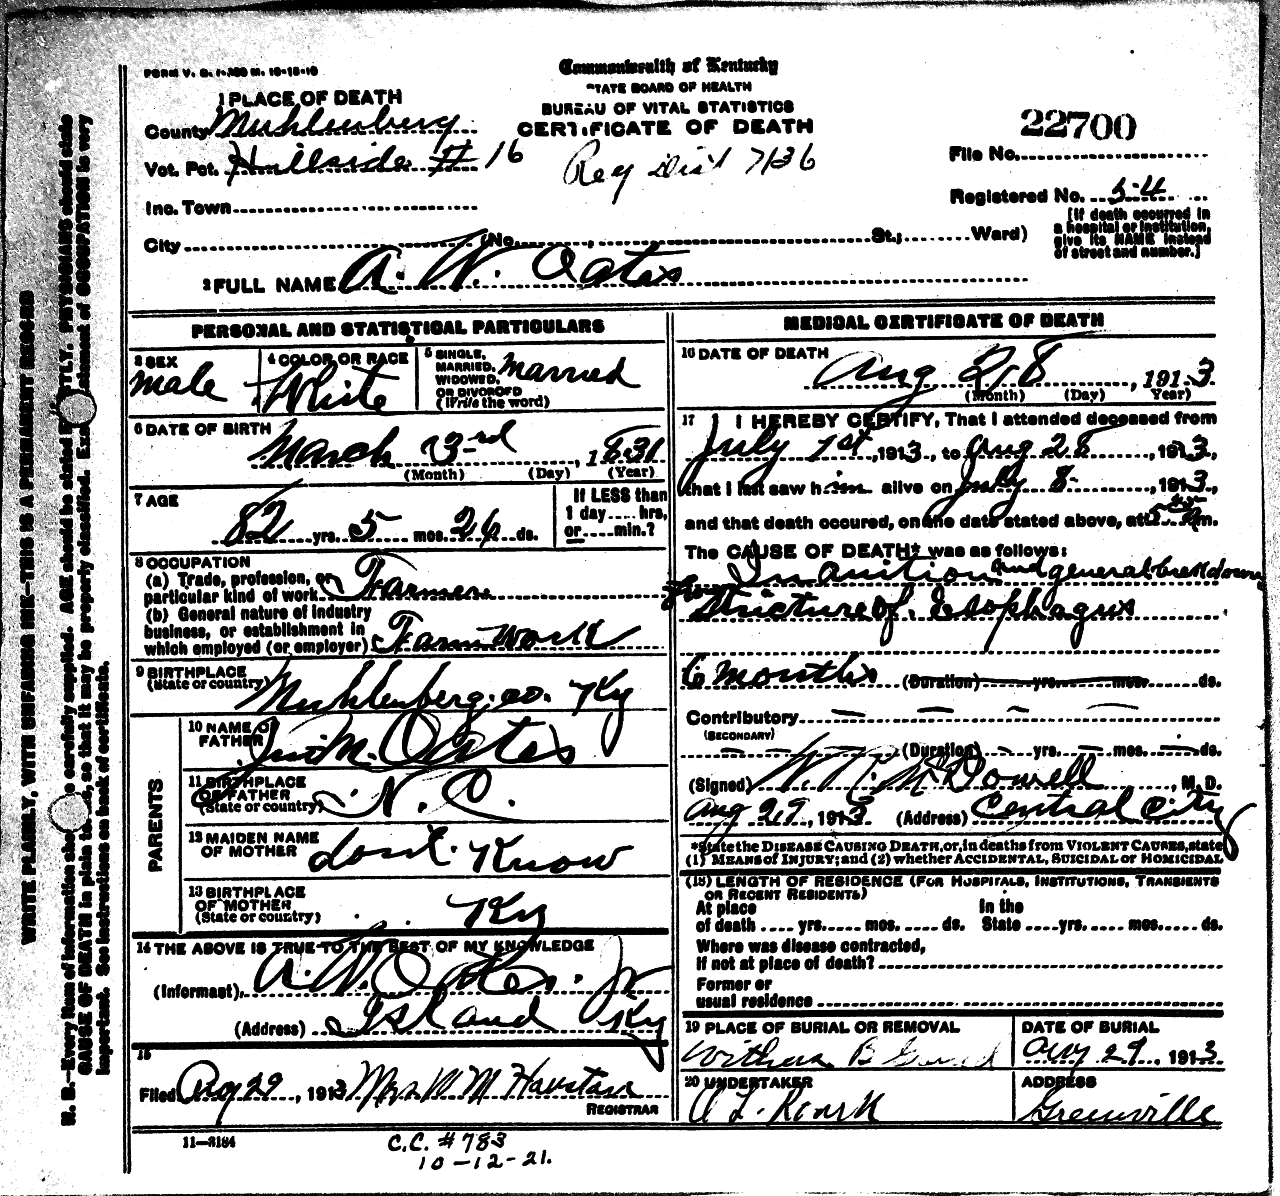 FORM V. S. 1-
Commonwealth of Kentucky
STATE BOARD OF HEALTH
BUREAU OF VITAL STATISTICS
CERTIFICATE OF DEATH
1 PLACE OF DEATH
County Muhlenberg
Vot. Pct. Hillside # 16
Reg Dist 7136
Inc. Town
City (No. St.; Ward)
22700
File No.
Registered No. 54
[If death occurred in
a hospital or institution,
give its NAME instead
of street and number.]
2 FULL NAME A. W. Oates
PERSONAL AND STATISTICAL PARTICULARS
3 SEX
male
4 COLOR OR RACE
White
5 SINGLE,
MARRIED,
WIDOWED,
OR DIVORCED
(Write the word)
married
6 DATE OF BIRTH
March 3rd, 1831
(Month) (Day) (Year)
7 AGE
82 yrs. 5 mos. 26 ds.
If LESS than
1 day .... hrs,
or ..... min.?
8 OCCUPATION
(a) Trade, profession, or
particular kind of work Farmer
(b) General nature of industry
business, or establishment in
which employed (or employer) Farm work
9 BIRTHPLACE
(State or country) Muhlenberg co. Ky
PARENTS
10 NAME OF
FATHER M. Oates
11 BIRTHPLACE
OF FATHER
(State or country) N. C.
12 MAIDEN NAME
OF MOTHER dont Know
13 BIRTHPLACE
OF MOTHER
(State or country) Ky
14 THE ABOVE IS TRUE TO THE BEST OF MY KNOWLEDGE
(Informant) A. W. Oates. Jr
(Address) Island Ky
15
Filed Aug 29, 1913 Mrs W M
REGISTRAR
11-3184
C.C. # 783
10-12-21.
MEDICAL CERTIFICATE OF DEATH
16 DATE OF DEATH
Aug 28, 1913
(Month) (Day) Year)
17 I HEREBY CERTIFY, That I attended deceased from
July 1st, 1913, to Aug 28, 1913,
that I last saw him alive on July 8, 1913,
and that death occured, on the date stated above, at m.
The CAUSE OF DEATH* was as follows:
Inanition and general breakdown
from Stricture of Esophagus
6 months (Duration) yrs. mos. ds.
Contributory
(SECONDARY)
(Duration) yrs. mos. ds.
(Signed) W. R. McDowell, M. D.
Aug 29, 1913 (Address) Central City
*State the DISEASE CAUSING DEATH, or, in deaths from VIOLENT CAUSES, state
(1) MEANS of INJURY; and (2) whether ACCIDENTAL, SUICIDAL or HOMICIDAL
(18) LENGTH OF RESIDENCE (FOR HOSPITALS, INSTITUTIONS, TRANSIENTS
OR RECENT RESIDENTS)
At place
of death .... yrs. mos. ds.
In the
State .... yrs. mos. ds.
Where was disease contracted,
If not at place of death?
Former or
usual residence
19 PLACE OF BURIAL OR REMOVAL
DATE OF BURIAL
Aug 29, 1913
20 UNDERTAKER
A L. Roark
ADDRESS
Greenville
WRITE PLAINLY, WITH UNFADING INK—THIS IS A PERMANENT RECORD
N. B.—Every item of information should be carefully supplied. AGE should be stated EXACTLY. PHYSICIANS should state
CAUSE OF DEATH in plain terms, so that it may be properly classified. Exact statement of OCCUPATION is very
important. See instructions on back of certificate.